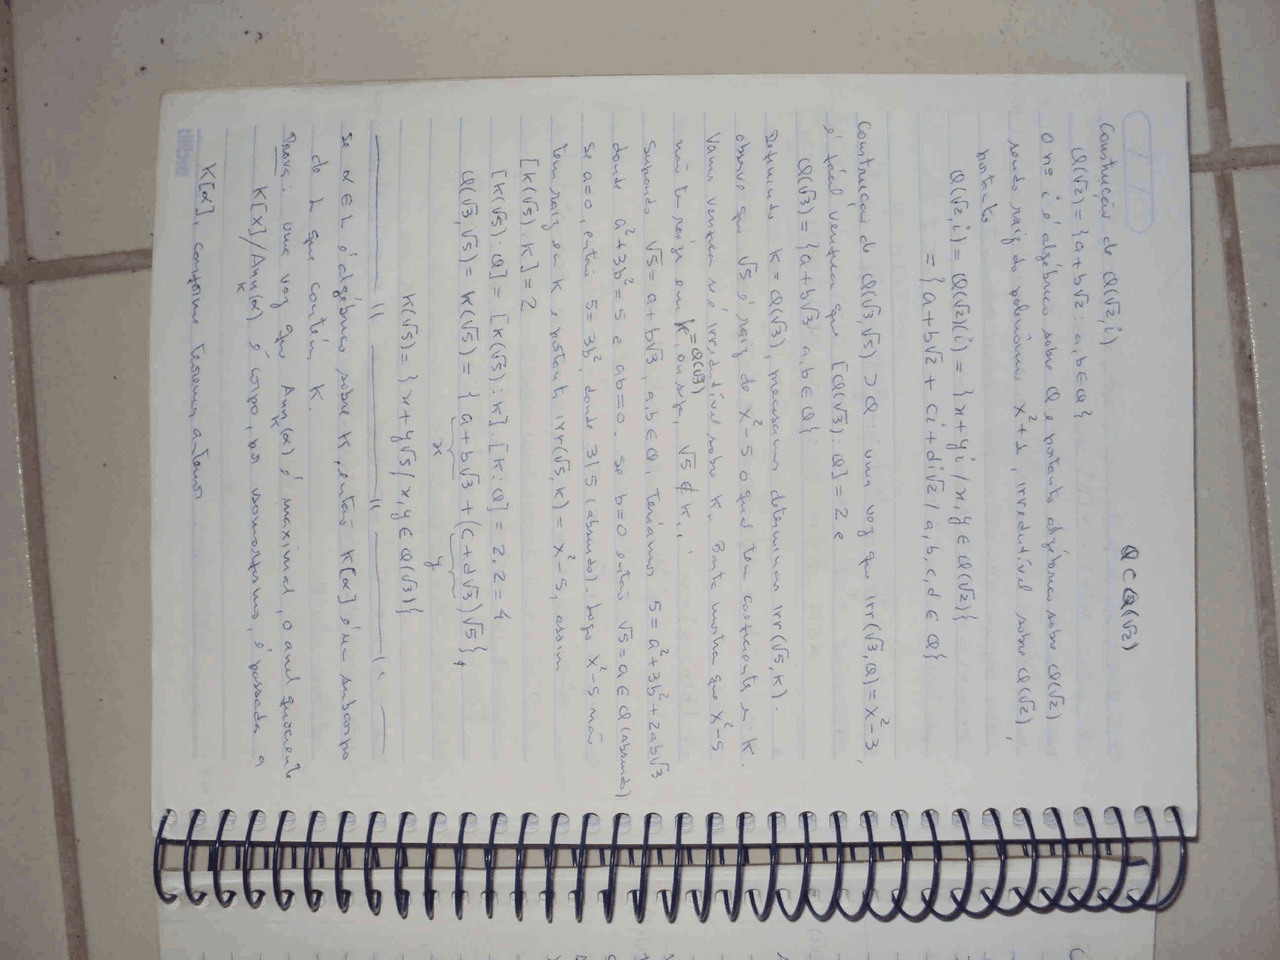 Q ⊂ Q(√2)
Construção de Q(√2, i)
Q(√2) = {a+b√2 : a, b ∈ Q}
O nº i é algébrico sobre Q e portanto algébrico sobre Q(√2)
sendo raiz do polinômio x²+1, irredutível sobre Q(√2),
portanto
Q(√2, i) = Q(√2)(i) = {x+yi / x, y ∈ Q(√2)}
= {a+b√2 + ci + di√2 / a, b, c, d ∈ Q}
Construção de Q(√3, √5) ⊃ Q uma vez que irr(√3, Q) = x²-3,
é fácil verificar que [Q(√3) : Q] = 2 e
Q(√3) = {a+b√3 a, b ∈ Q}
Definindo K = Q(√3), precisamos determinar irr(√5, K).
observe que √5 é raiz de x²-5 o qual tem coeficiente em K.
Vamos verificar se é irredutível sobre K. Basta mostrar que x²-5
não tem raiz em K=Q(√3), ou seja, √5 ∉ K.
Supondo √5 = a+b√3, a, b ∈ Q, teríamos 5 = a²+3b²+2ab√3
donde a²+3b²=5 e ab=0. se b=0 então √5 = a ∈ Q (absurdo)
se a=0, então 5=3b², donde 3|5 (absurdo). Logo x²-5 não
tem raiz em K e portanto irr(√5, K) = x²-5, assim
[K(√5) : K] = 2
[K(√5) : Q] = [K(√5) : K] . [K : Q] = 2.2 = 4
Q(√3, √5) = K(√5) = {a+b√3 + (c+d√3)√5},
x y
K(√5) = {x+y√5 / x, y ∈ Q(√3)}
Se α ∈ L é algébrico sobre K, então K[α] é um subcorpo
de L que contém K.
Prova: uma vez que Ann_K(α) é maximal, o anel quociente
K[x]/Ann_K(α) é corpo, por isomorfismo, é passada a
K[α], conforme teorema anterior